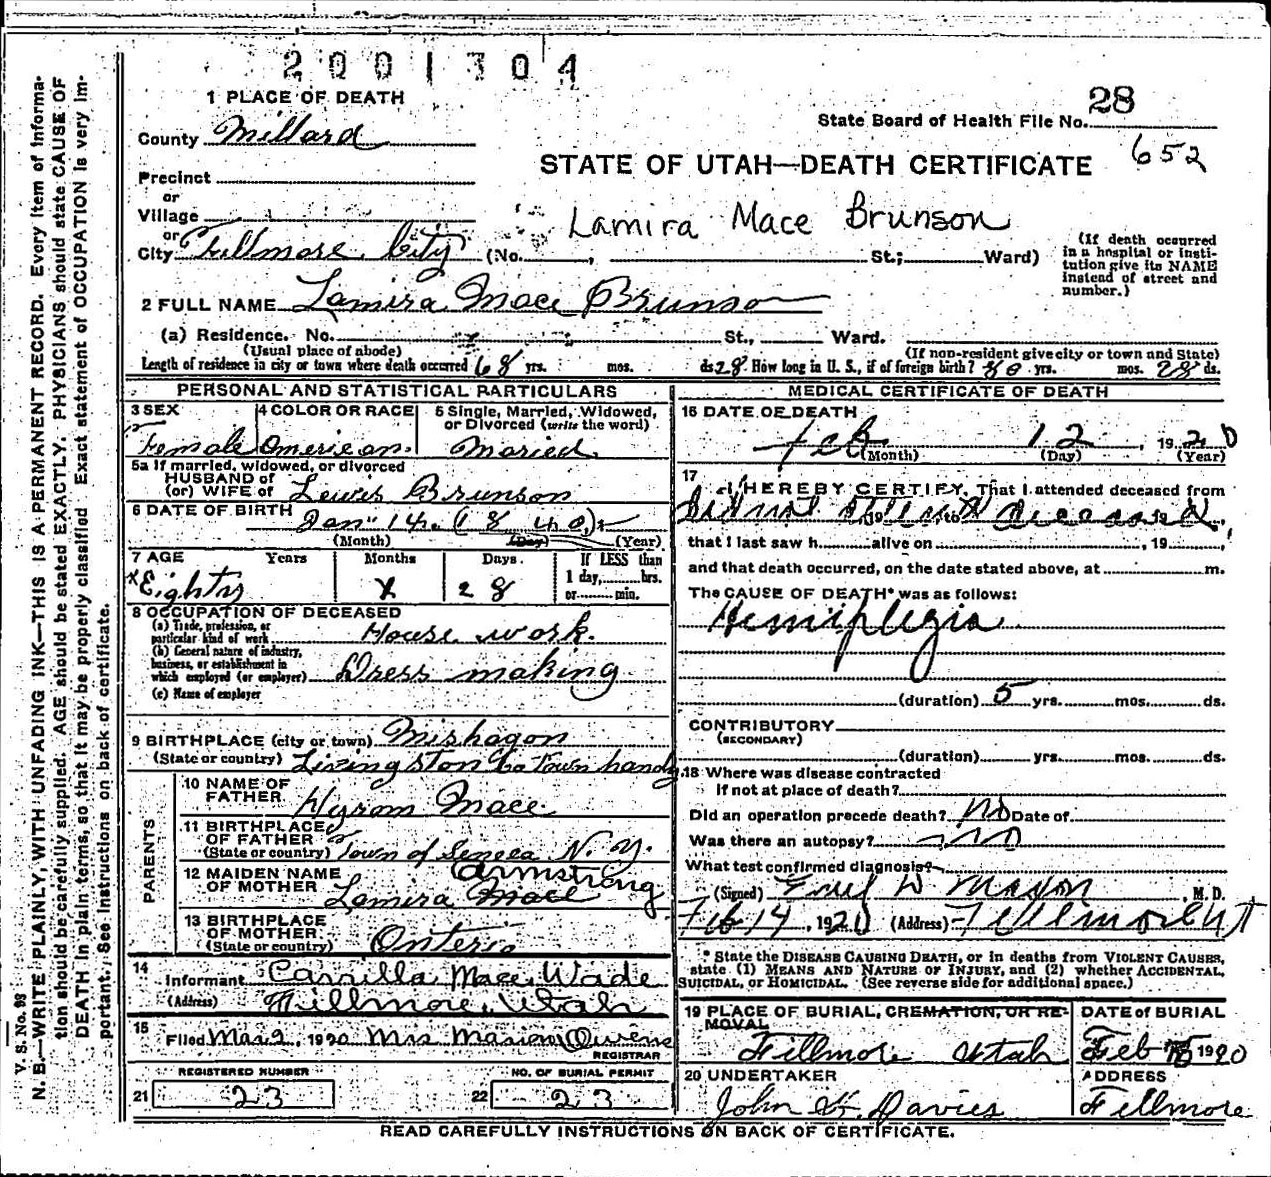 2001304
1 PLACE OF DEATH
County Millard
State Board of Health File No. 28
652
STATE OF UTAH—DEATH CERTIFICATE
Precinct
or
Village
or
City Fillmore City (No. , St.; Ward)
Lamira Mace Brunson
(If death occurred in a hospital or institution give its NAME instead of street and number.)
2 FULL NAME Lamira Mace Brunson
(a) Residence. No. St., Ward.
(Usual place of abode) (If non-resident give city or town and State)
Length of residence in city or town where death occurred 68 yrs. mos. ds 28 How long in U. S., if of foreign birth? 80 yrs. mos. 28 ds.
PERSONAL AND STATISTICAL PARTICULARS
3 SEX
Female
4 COLOR OR RACE
American
5 Single, Married, Widowed, or Divorced (write the word)
Maried
5a If married, widowed, or divorced
HUSBAND of
(or) WIFE of Lewis Brunson
6 DATE OF BIRTH Jan 14. (1840)
(Month) (Day) (Year)
7 AGE Years Months Days If LESS than
1 day, hrs.
or min.
Eighty x 28
8 OCCUPATION OF DECEASED
(a) Trade, profession, or particular kind of work House work.
(b) General nature of industry, business, or establishment in which employed (or employer) Dress making
(c) Name of employer
9 BIRTHPLACE (city or town) Mishagon
(State or country) Livingston Co Town handy
PARENTS
10 NAME OF FATHER Hyrom Mace
11 BIRTHPLACE OF FATHER
(State or country) Town of Seneca N. Y.
12 MAIDEN NAME OF MOTHER Lamira Mace Armstrong
13 BIRTHPLACE OF MOTHER
(State or country) Onterio
14
Informant Carrilla Mace Wade
(Address) Fillmore, Utah
15
Filed Mar 2, 1920 Mrs Marion Owens
REGISTRAR
REGISTERED NUMBER
21 23
NO. OF BURIAL PERMIT
22 23
MEDICAL CERTIFICATE OF DEATH
16 DATE OF DEATH
Feb 12, 1920
(Month) (Day) (Year)
17
I HEREBY CERTIFY, That I attended deceased from
Did not attend deceased
that I last saw h alive on , 19 ,
and that death occurred, on the date stated above, at m.
The CAUSE OF DEATH* was as follows:
Hemiplegia
(duration) 5 yrs. mos. ds.
CONTRIBUTORY
(SECONDARY)
(duration) yrs. mos. ds.
18 Where was disease contracted
If not at place of death?
Did an operation precede death? No Date of
Was there an autopsy? no
What test confirmed diagnosis?
(Signed) W Mason, M. D.
Feb 14, 1920 (Address) Fillmore Ut
* State the DISEASE CAUSING DEATH, or in deaths from VIOLENT CAUSES, state (1) MEANS AND NATURE OF INJURY, and (2) whether ACCIDENTAL, SUICIDAL, or HOMICIDAL. (See reverse side for additional space.)
19 PLACE OF BURIAL, CREMATION, OR REMOVAL
Fillmore Utah
DATE of BURIAL
Feb 15 1920
20 UNDERTAKER
John F. Davies
ADDRESS
Fillmore
READ CAREFULLY INSTRUCTIONS ON BACK OF CERTIFICATE.
V. S. No. 98
N. B.—WRITE PLAINLY, WITH UNFADING INK—THIS IS A PERMANENT RECORD. Every item of information should be carefully supplied. AGE should be stated EXACTLY. PHYSICIANS should state CAUSE OF DEATH in plain terms, so that it may be properly classified. Exact statement of OCCUPATION is very important. See instructions on back of certificate.